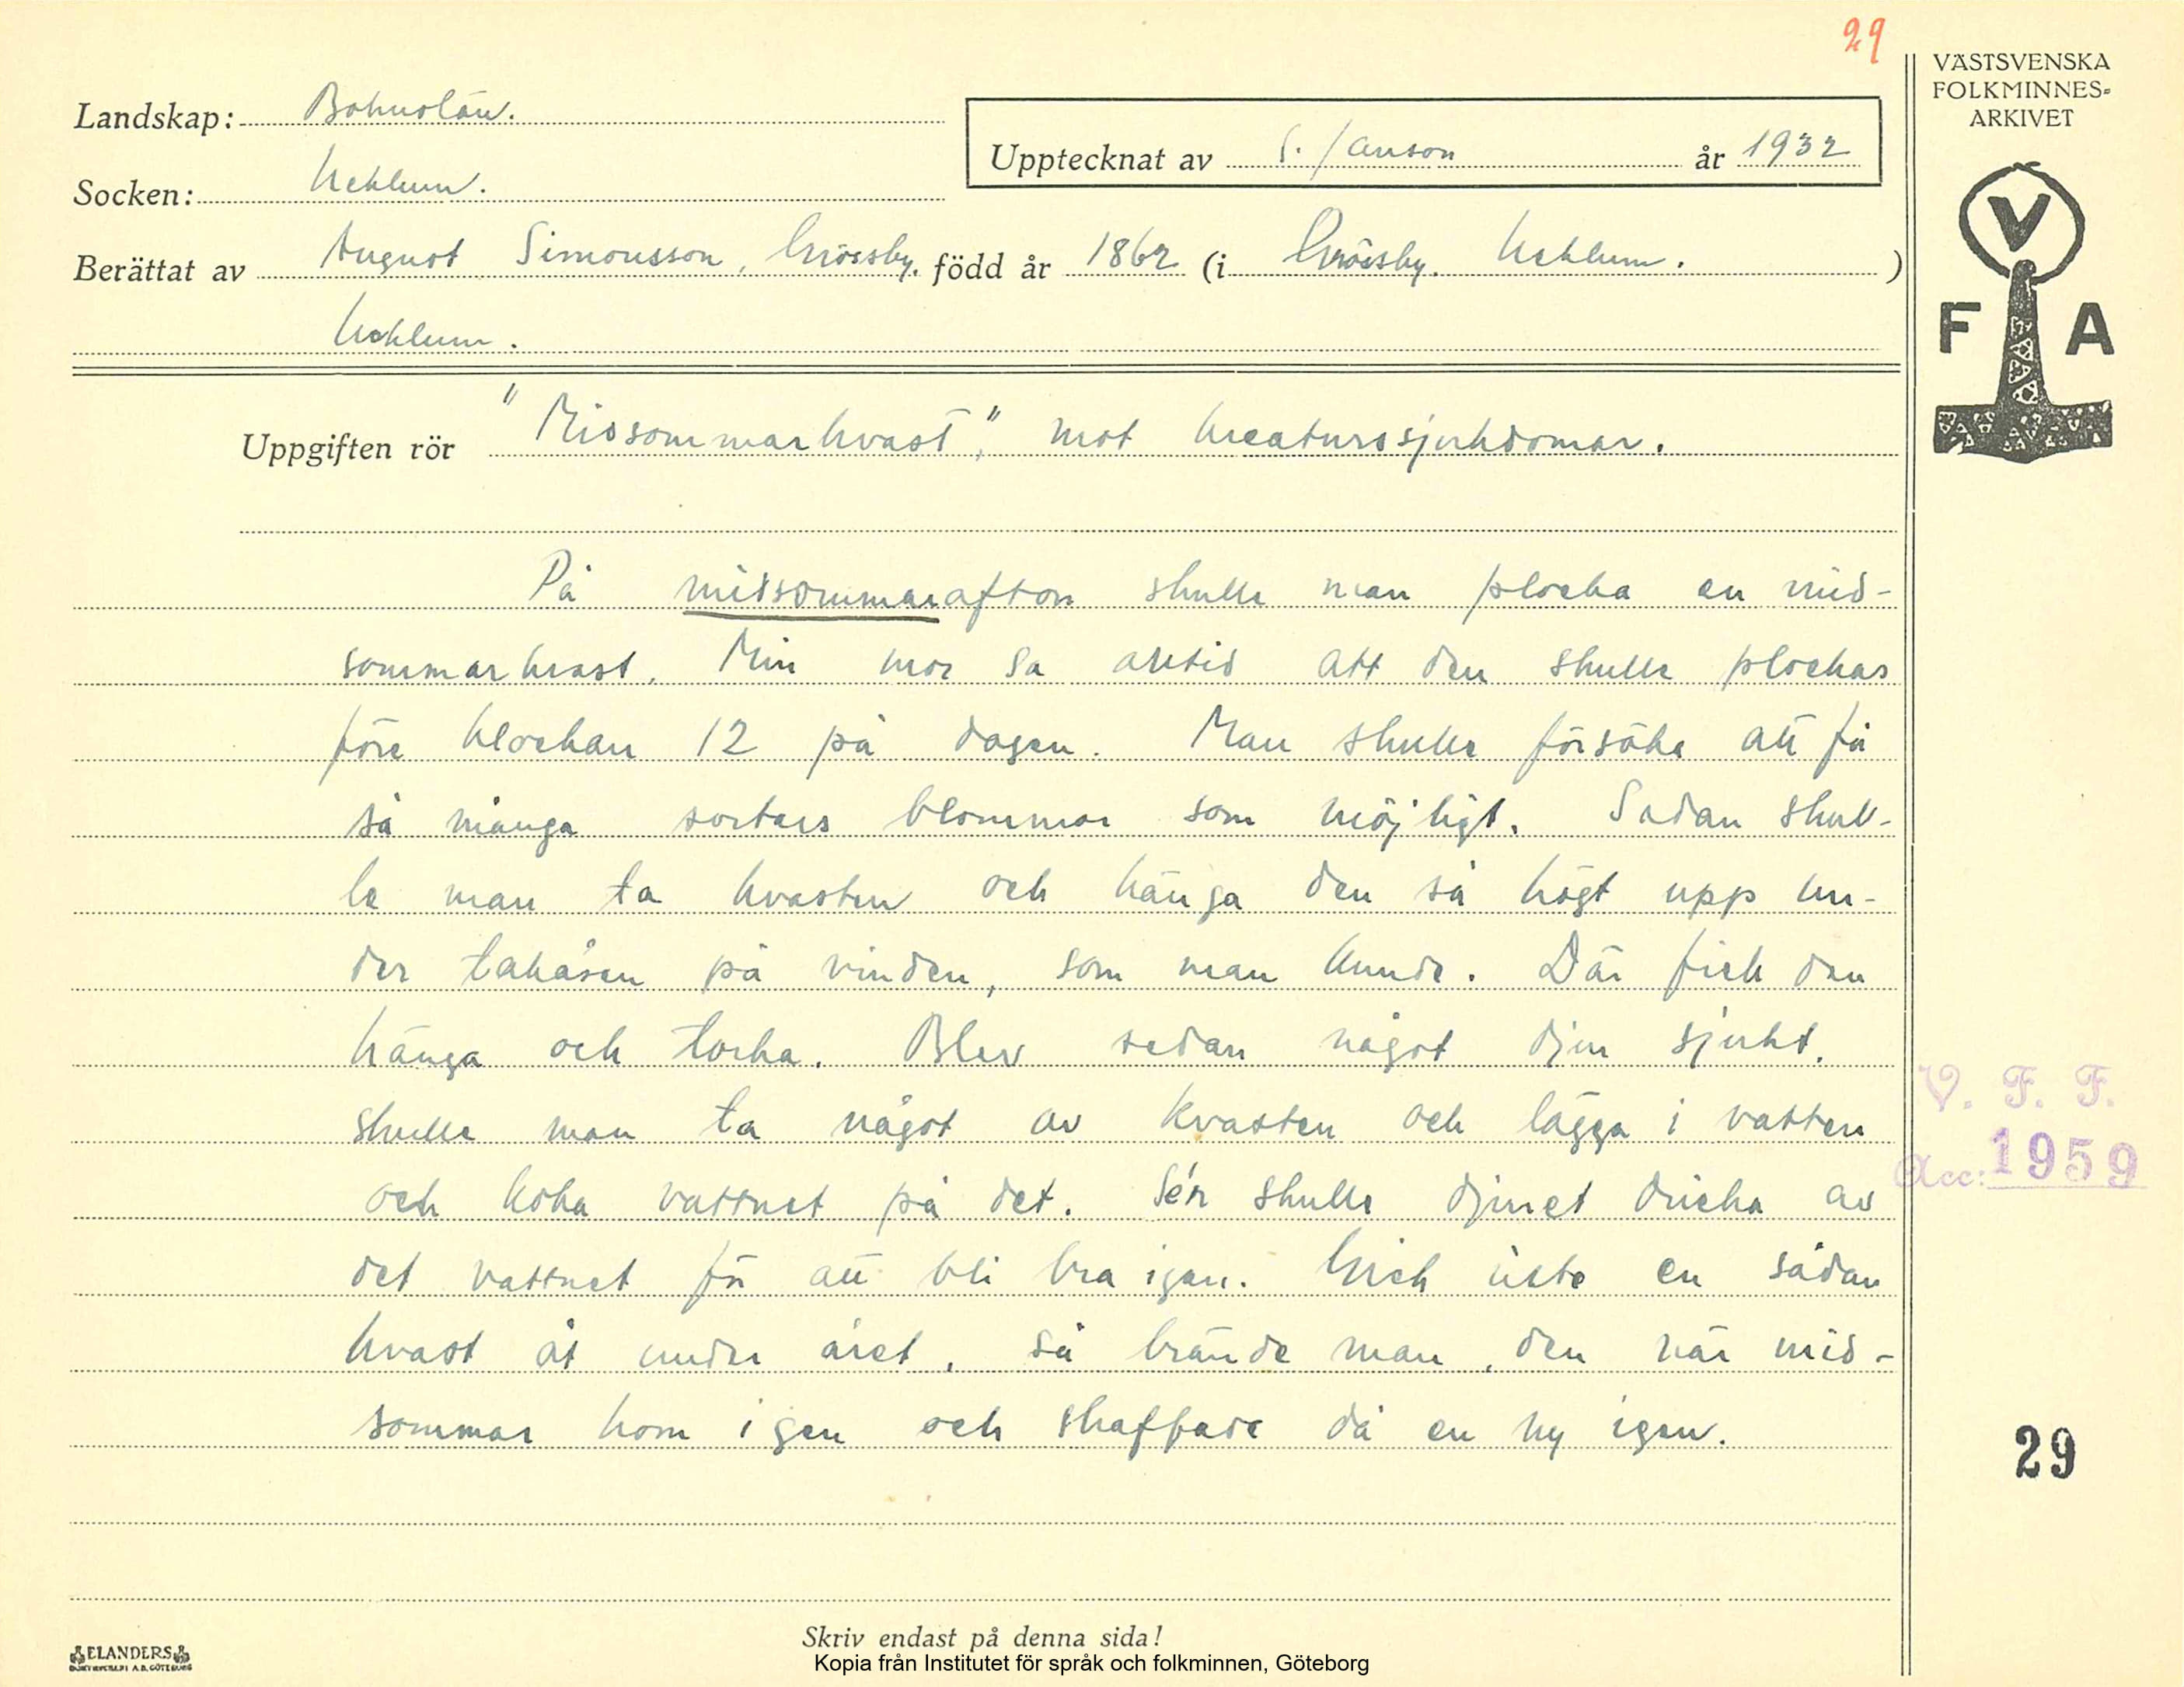 29
VÄSTSVENSKA
FOLKMINNES-
ARKIVET
Landskap: Bohuslän.
Upptecknat av S. Janson år 1932
Socken: Ucklum.
Berättat av August Simonsson, Grössby. född år 1862 (i Grössby. Ucklum. )
Ucklum.
V
F A
Uppgiften rör "Midsommarkvast", mot kreaturssjukdomar.
På midsommarafton skulle man plocka en mid-
sommarkvast. Min mor sa alltid att den skulle plockas
före klockan 12 på dagen. Man skulle försöka att få
så många sorters blommor som möjligt. Sedan skul-
le man ta kvasten och hänga den så högt upp un-
der takåsen på vinden, som man kunde. Där fick den
hänga och torka. Blev sedan något djur sjukt,
skulle man ta något av kvasten och lägga i vatten
och koka vattnet på det. Se'n skulle djuret dricka av
det vattnet för att bli bra igen. Gick inte en sådan
kvast åt under året, så brände man den när mid-
sommar kom igen och skaffade då en ny igen.
V. F. F.
Acc: 1959
29
Skriv endast på denna sida!
ELANDERS
Kopia från Institutet för språk och folkminnen, Göteborg